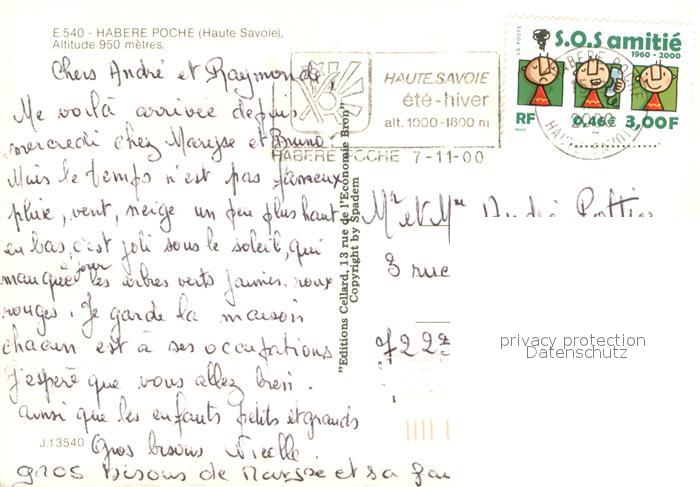 E.540 - HABERE POCHE (Haute Savoie),
Altitude 950 mètres.
Chers André et Raymonde
Me voilà arrivée depuis
mercredi chez Maryse et Bruno.
Mais le temps n'est pas fameux
pluie, vent, neige un peu plus haut
en bas, c'est joli sous le soleil, qui
manque à jour les arbres verts jaunes roux
rouges. Je garde la maison
chacun est à ses occupations
J'espère que vous allez bien.
ainsi que les enfants petits et grands
Gros bisous Nicolle
J.13540
gros bisous de Maryse et sa
"Editions Cellard, 13 rue de l'Economie Bron"
Copyright by Spadem
HAUTE.SAVOIE
été-hiver
alt. 1000-1600 m
HABERE POCHE 7-11-00
LA POSTE
S.O.S amitié
1960-2000
RF 0,46€ 3,00F
HABERE POCHE
HAUTE-SAVOIE
Mr et Mme André Pottier
3 rue
722
privacy protection
Datenschutz